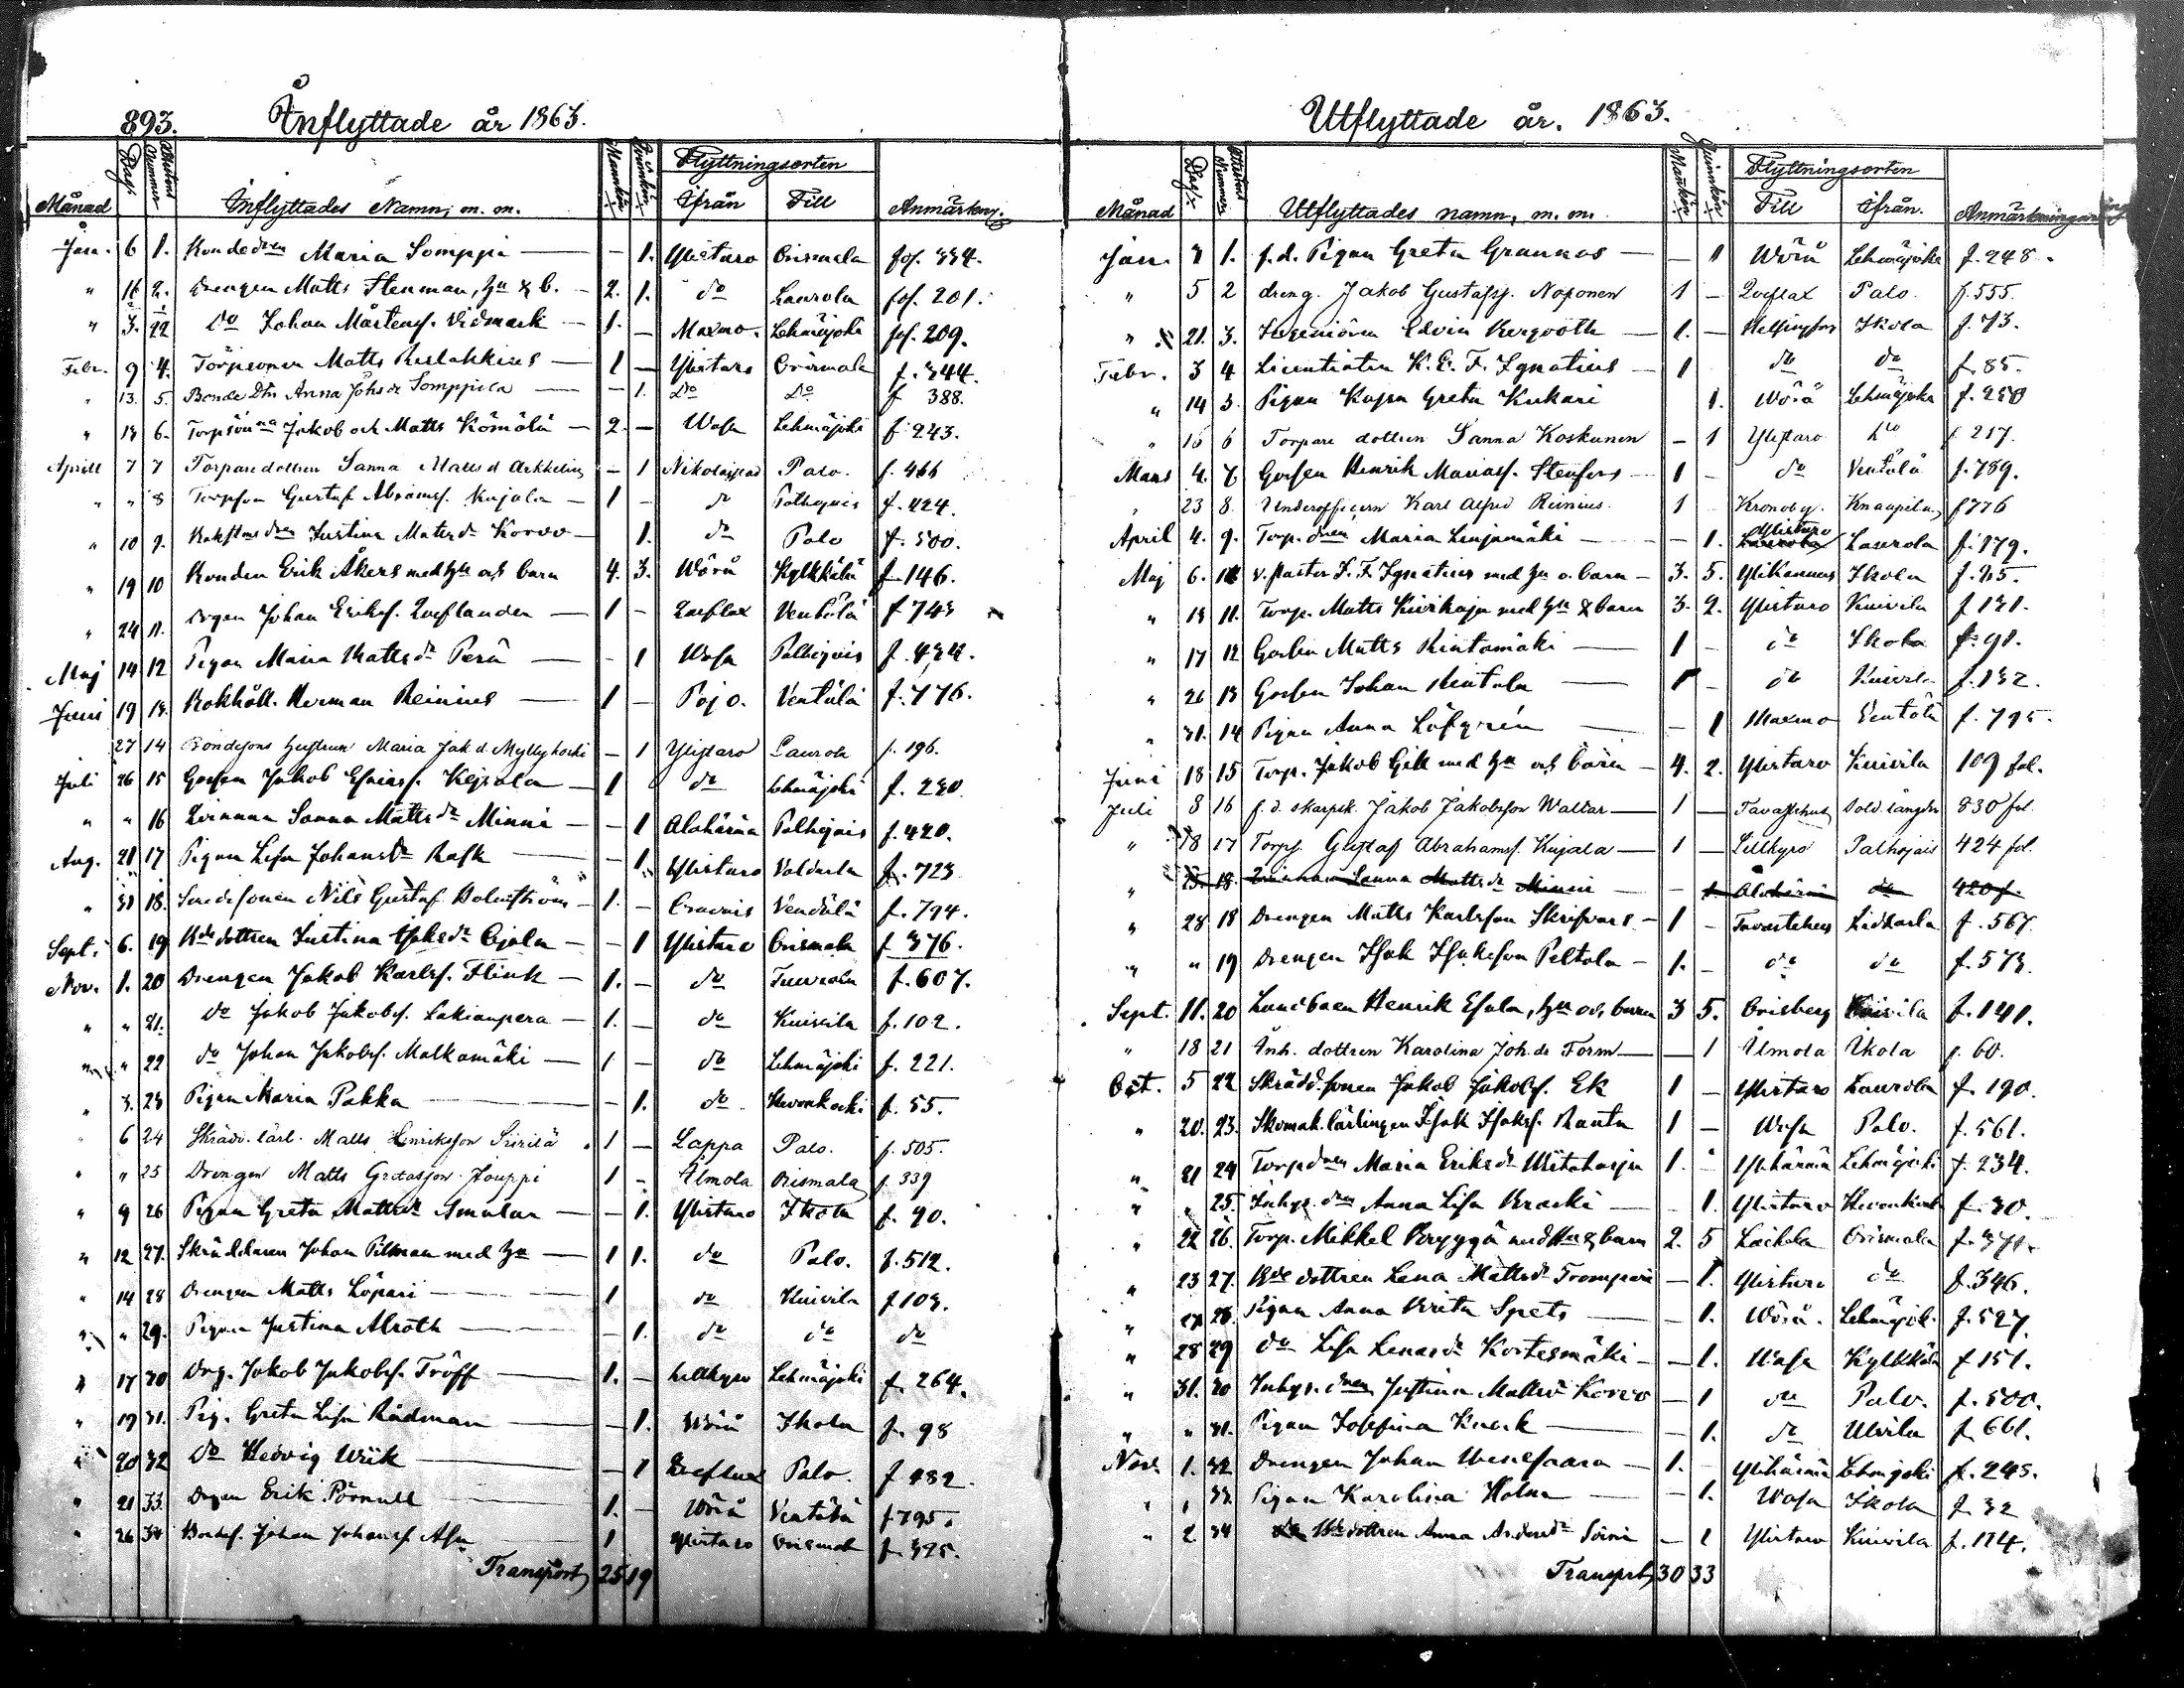 893. Inflyttade år 1863.
Månad Dag. Attestens Nummer Inflyttades Namn, m. m. Mankön. Qvinkön. Flyttningsorten Ifrån Till Anmärkn.
Jan. 6 1. Maria Somppi — - 1. Ylistaro Orismala fol. 334.
" 16 2. Drengen Matts Stenman, hu & b. - 2. 1. do Laurola fol. 201.
" 3. 22 Do Johan Mårtenss. Vidmark - 1. - Maxmo. Lehmäjoki fol. 209.
Febr. 9 4. Matts — 1 - Ylistaro Orismala f. 344.
" 13. 5. Bonde Dtr Anna Johsdr Somppila — - 1. Do Do f 388.
" 6. Jakob och Matts Kömälä - 2. - Wasa Lehmäjoki f. 243.
Aprill 7 7 Torparedottren Sanna Mattsd - 1 Nikolaistad Palo. f. 466
" " 8 Torpson Gustaf Abramss. Kujala - 1 - d Palhojais f. 424.
" 10 9. Justina Matsdr Korvo - 1. do Palo f. 500.
" 19 10 Bonden Erik Åkers med hu och barn 4. 3. Wörå Kylkkälä f. 146.
" 24 11. Drgen Johan Erikss. Qveflander — 1 - Qveflax Ventälä f 743
Maj 14 12 Pigan Maria Mattsdr Perä — - 1 Wasa Palhojais f. 434.
Juni 19 13. Bokhåll. Herman Reinius — 1 - Pojo. Ventälä f. 776.
27 14 Bondesons hustrun Maria Jak.d. Myllykoski - 1 Ylistaro Laurola f. 196.
Juli 26 15 Gossen Jakob Esaiass. Kejsala - 1 do Lehmäjoki f. 230.
" " 16 Qvinnan Sanna Mattsdr Minni - - 1 Alahärmä Palhojais f. 420.
Aug. 21 17 Pigan Lisa Johansdr Rask — - 1. Ylistaro Valdarla f. 723
" 31 18. Nils Gustaf Holmström - 1. - Oravais Ventälä f. 794.
Sept. 6. 19 Bde dottren Justina Jaksdr Ojala - - 1 Ylistaro Orismala f 376.
Nov. 1. 20 Drengen Jakob Karlss. Flink - 1. - do Tuurala f. 607.
" " 21. do Jakob Jakobss. Lakianpera - 1. - do Kuivila f. 102.
" " 22 do Johan Jakobss. Malkamäki - 1 - do Lehmäjoki f. 221.
" 3. 23 Pigan Maria Pakka — - 1. do f. 55.
" 6 24 Skräd. lärl. Matts Henriksson Siirilä 1 - Lappa Palo. f. 505.
" " 25 Drengen Matts Gretasson Jouppi 1 - Ilmola Orismala f. 339
" 9 26 Pigan Greta Mattsdr - - 1. Ylistaro Ikola f. 90.
" 12 27. Skräddaren Johan Pilman med hu — 1 1. do Palo. f. 512.
" 14 28 Drengen Matts Löpari — 1 do Kuivila f 103.
" " 29. Pigan Justina Alroth — - 1. do do do
" 17 30 Drg. Jakob Jakobss. Tröff — 1. - Lillkyro Lehmäjoki f. 264.
" 19 31. Pig. Greta Lisa Rådman — - 1. Wörå Ikola f. 98
" 20 32 Do Hedvig Wiik — - 1 Qveflax Palo f 482.
" 21 33. Drgen Erik Pörnull — 1. - Wörå Ventälä f 795.
" 26 34 Bondes. Johan Johanss. Asu 1 Ylistaro Orismala f. 395.
Transport 25 19
Utflyttade år. 1863.
Månad Dag. Attestens Nummer Utflyttades namn, m. m. Mankön Qvinnkön Flyttningsorten Till Ifrån. Anmärkningar
Jan. 3 1. f.d. Pigan Greta Grannas — - 1 Wörå Lehmäjoki f. 248.
" 5 2 dreng. Jakob Gustafss. Noponen 1 - Qveflax Palo. f. 555.
" 21. 3. Ingeniören Edvin Bergroth — 1. - Helsingfors Ikola f. 73.
Febr. 3 4 Licentiaten K. E. F. Ignatius — 1 do do f. 85.
" 14 3. Pigan Kajsa Greta Kukari 1. Wörå Lehmäjoki f. 250
" 6 Torpare dottren Sanna Koskunen - 1 Ylistaro f. 217.
Mars 4. 7 Gossen Henrik Mariass. Stenfors - 1 - do Ventälä f. 789.
" 23 8. Underofficern Karl Alfred Reinius. 1 Kronoby. Knaapila f 776
April 4. 9. Torp. dren Maria Linjamäki — - 1. Ylistaro Laurola f. 179.
Maj 6. v. Pastor J. F. Ignatius med hu o. barn - 3. 5. Ylikannus Ikola f. 85.
" 11. Torp. Matts Kivikaja med hu & barn 3. 2. Ylistaro Kuivila f 131.
" 17 12 Gossen Matts Rintamäki — 1 - do Ikola f. 91.
" 26 13 Gossen Johan Rintala — 1 - do Kuivila f. 132.
" 31. 14 Pigan Anna Löfgrén — - 1 Maxmo Ventälä f. 795.
Juni 18 15 Torp. Jakob Gill med hu och barn - 4. 2. Ylistaro Kuivila 109 fol.
Juli 8 16 f. d. skarpsk. Jakob Jakobsson Waltar — 1 - Tavastehus Sold. längden 830 fol
" 18 17 Torps. Gustaf Abrahamss. Kujala — 1 - Lillkyro Palhojais 424 fol.
" 25. 18. Qvinnan Sanna Mattsdr Minni - 1. Alahärmä do 420 f.
" 28 18 Drengen Matts Karlsson Skrifvars - 1 - Tavastehus f. 567.
" " 19 Drengen Isak Isaksson Peltola - 1. - do do f. 573.
Sept. 11. 20 Landboen Henrik Esala, hu och barn 3 5. Orisberg Kuivila f. 141.
" 18 21 Inh. dottren Karolina Joh.dr Form — - 1 Ilmola Ikola f. 60.
Oct. 5 22 Skrädd. sonen Jakob Jakobss. Ek 1 - Ylistaro Laurola f. 190.
" 20. 23. Skomak. lärlingen Isak Isakss. Ranta 1 - Wasa Palo. f. 561.
" 21 24 Torp dren Maria Eriksdr 1. - Ylihärmä Lehmäjoki f. 234.
" " 25. Inhys. dren Anna Lisa - 1. Ylistaro f. 30.
" 22 26. Torp. Mikkel Brygga med hu & barn 2. 5 Laihela Orismala f. 371.
" 23 27. Bde dottren Lena Mattsdr Trompari - 1. Ylistaro do f. 346.
" 27 28. Pigan Anna Brita Spets — - 1. Wörå. Lehmäjoki f. 527.
" 28 29 do Lisa Lenasdr Kortesmäki - - 1. Wasa Kylkkälä f 151.
" 31. 30 Inhys. dren Justina Mattsdr Korvo - 1 do Palo. f. 500.
" " 31. Pigan Josefina — - 1. do Ulvila f 661.
Nov. 1. 32 Drengen Johan - 1. - Ylihärmä Lehmäjoki f. 245.
" " 33. Pigan Karolina Holm — - 1. Wasa Ikola f. 32
" 2. 34 Bde dottren Anna Andersdr Soini - 1 Ylistaro Kuivila f. 114.
Transport 30 33